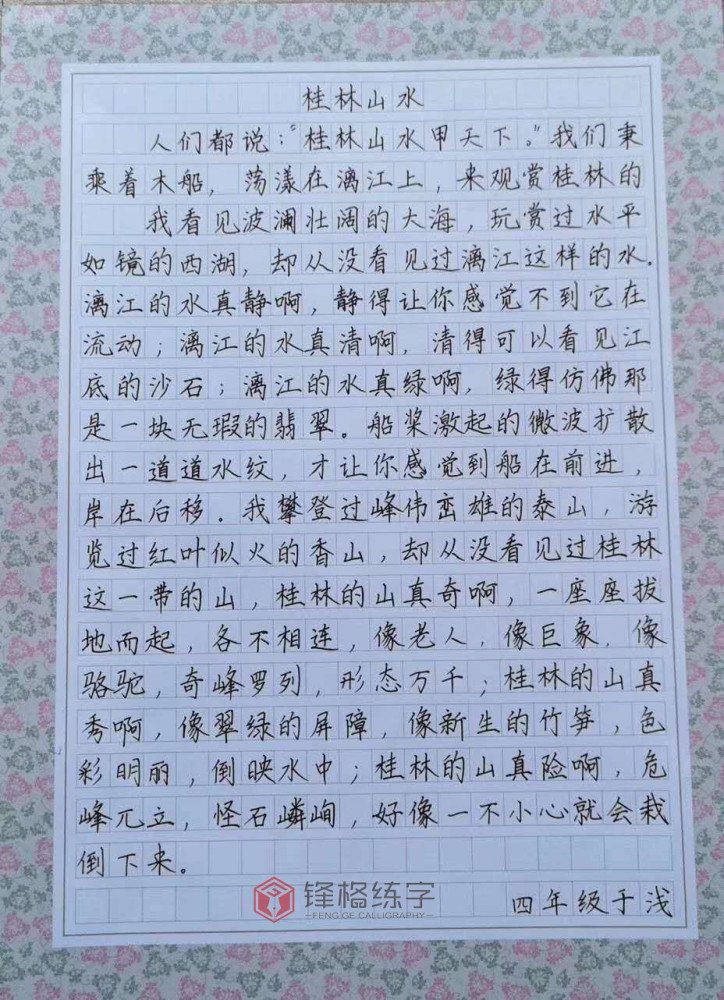 桂林山水
人们都说："桂林山水甲天下。"我们秉
乘着木船，荡漾在漓江上，来观赏桂林的
我看见波澜壮阔的大海，玩赏过水平
如镜的西湖，却从没看见过漓江这样的水.
漓江的水真静啊，静得让你感觉不到它在
流动；漓江的水真清啊，清得可以看见江
底的沙石；漓江的水真绿啊，绿得仿佛那
是一块无瑕的翡翠。船桨激起的微波扩散
出一道道水纹，才让你感觉到船在前进，
岸在后移.我攀登过峰伟峦雄的泰山，游
览过红叶似火的香山，却从没看见过桂林
这一带的山，桂林的山真奇啊，一座座拔
地而起，各不相连，像老人，像巨象，像
骆驼，奇峰罗列，形态万千；桂林的山真
秀啊，像翠绿的屏障，像新生的竹笋，色
彩明丽，倒映水中；桂林的山真险啊，危
峰兀立，怪石嶙峋，好像一不小心就会栽
倒下来。
锋格练字
FENG GE CALLIGRAPHY
四年级于浅